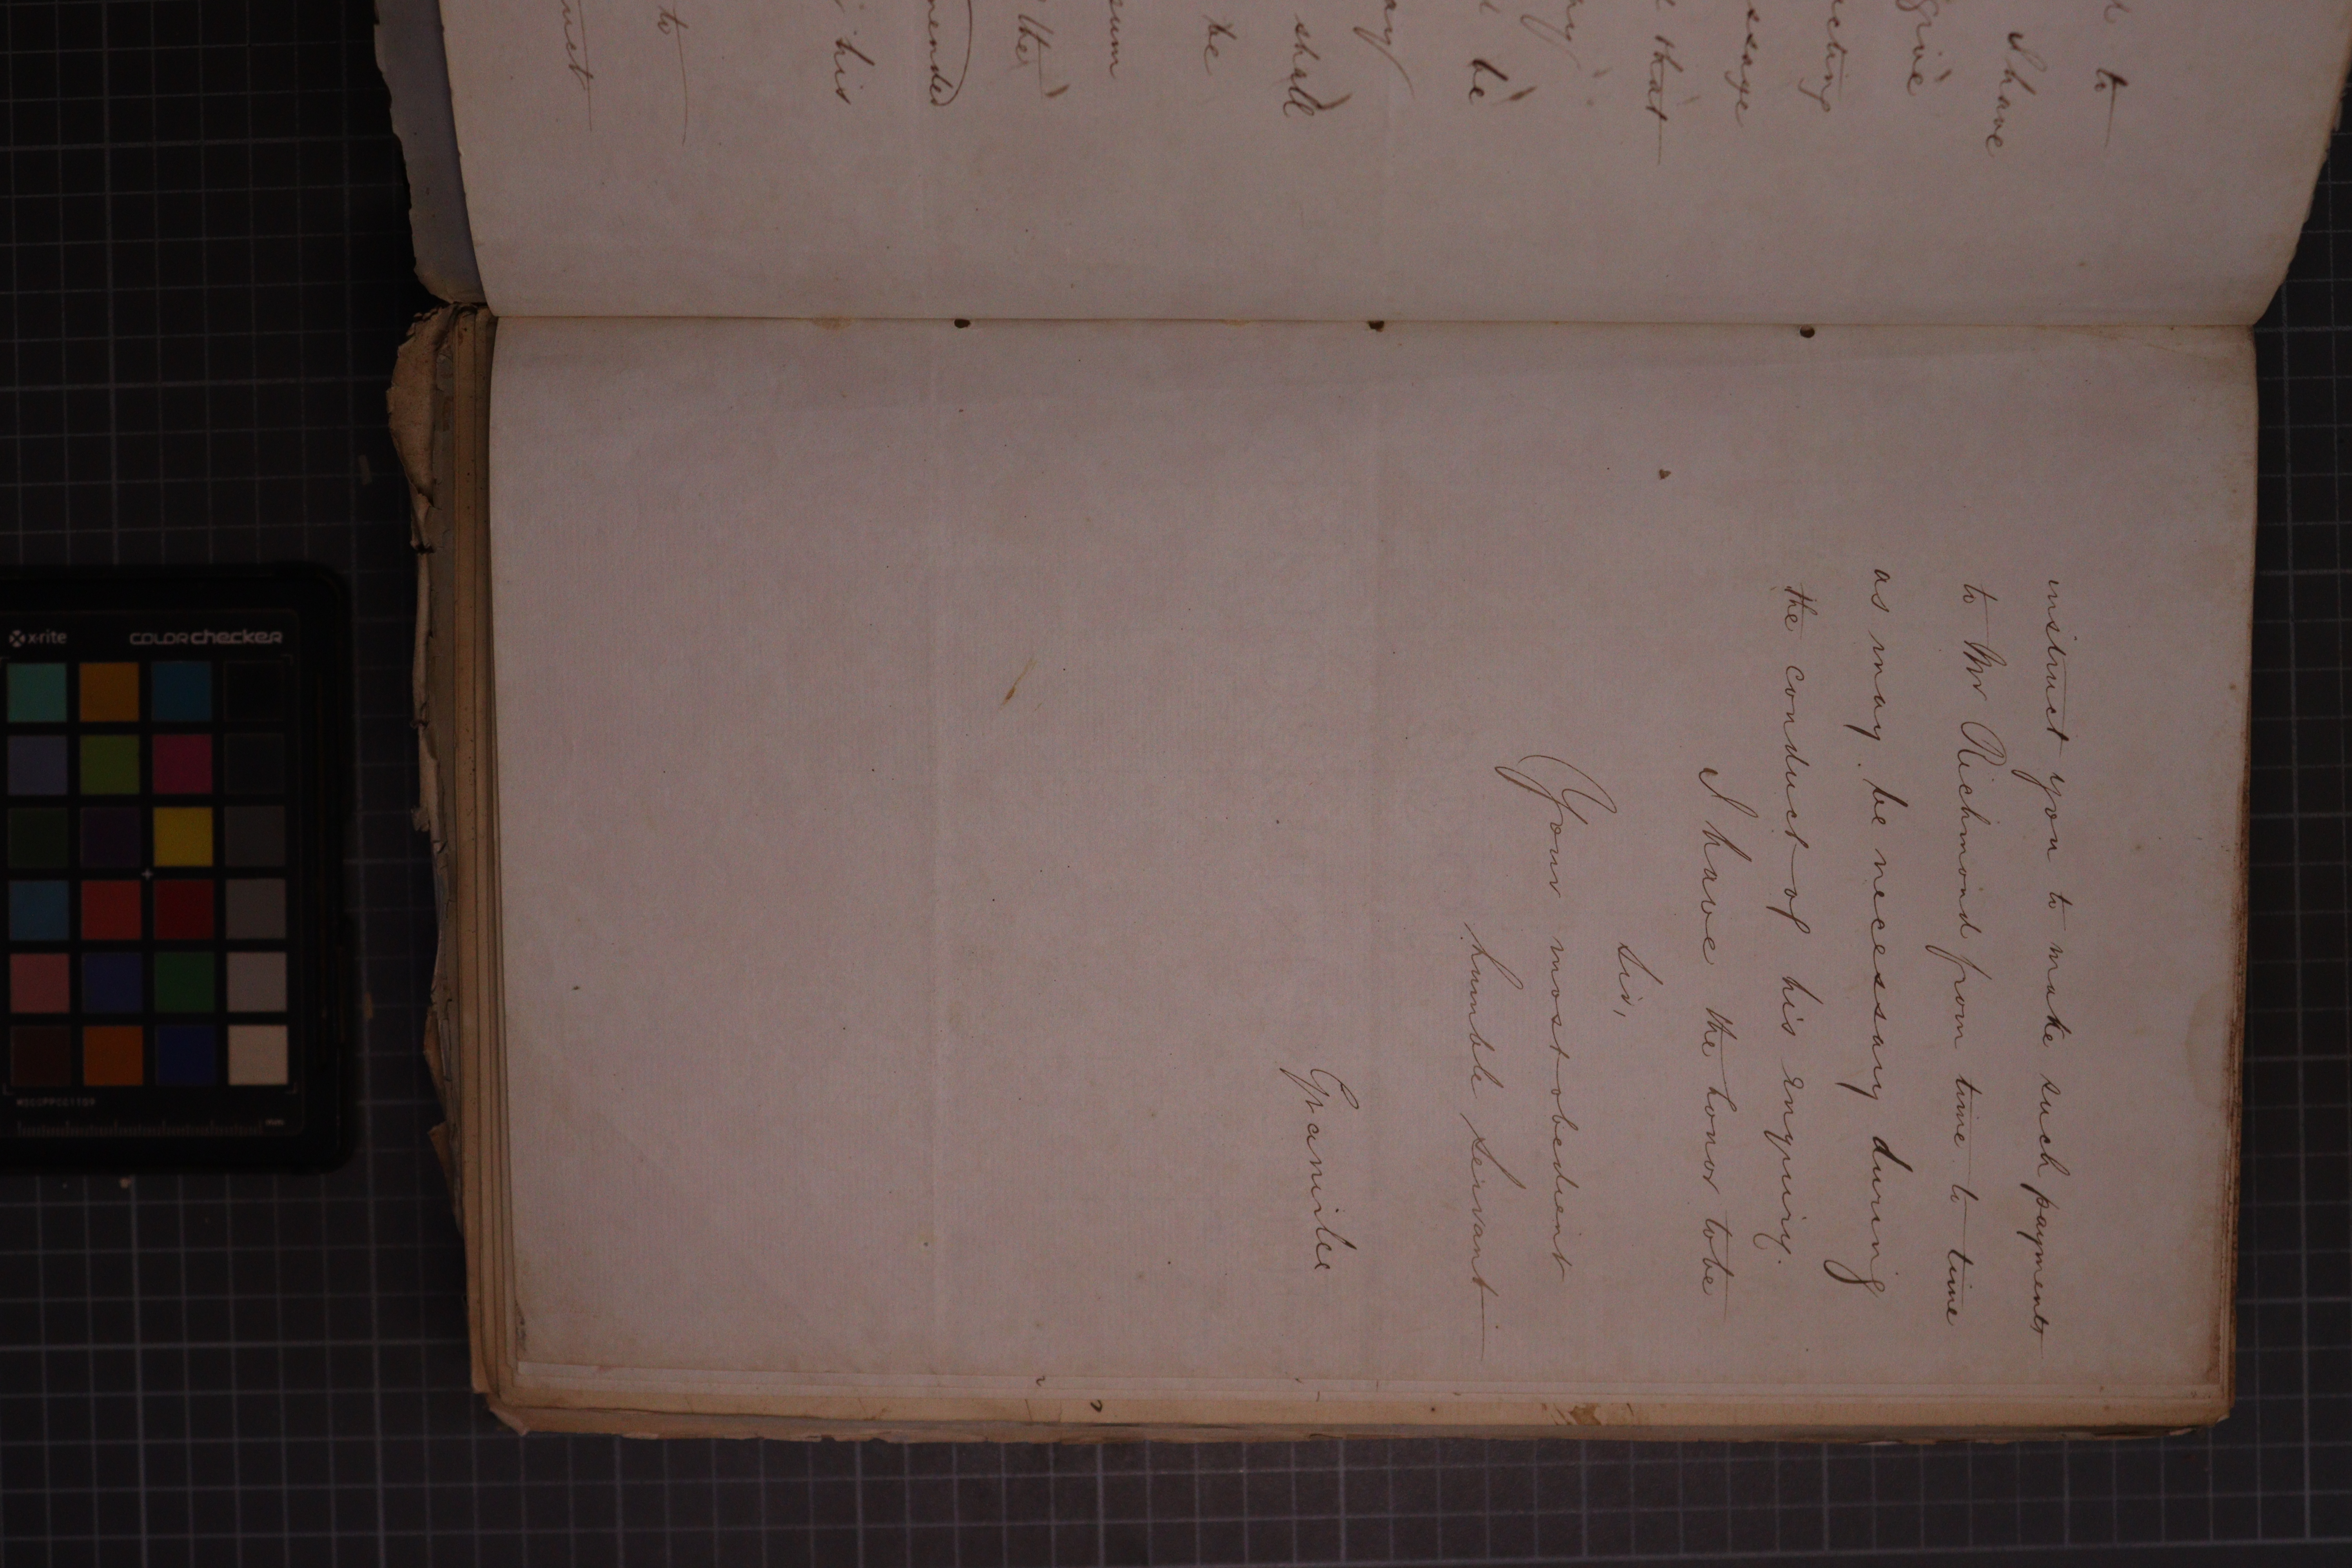 d to
I have
give
acting
ssage
that
be
shall
the
sum
the
mended
his
to
instruct you to make such payments
to Mr Richmond from time to time
as may be necessary during
the conduct of his enquiry.
I have the honor to be
Sir,
Your most obedient
humble servant
Granville
x-rite
COLORchecker